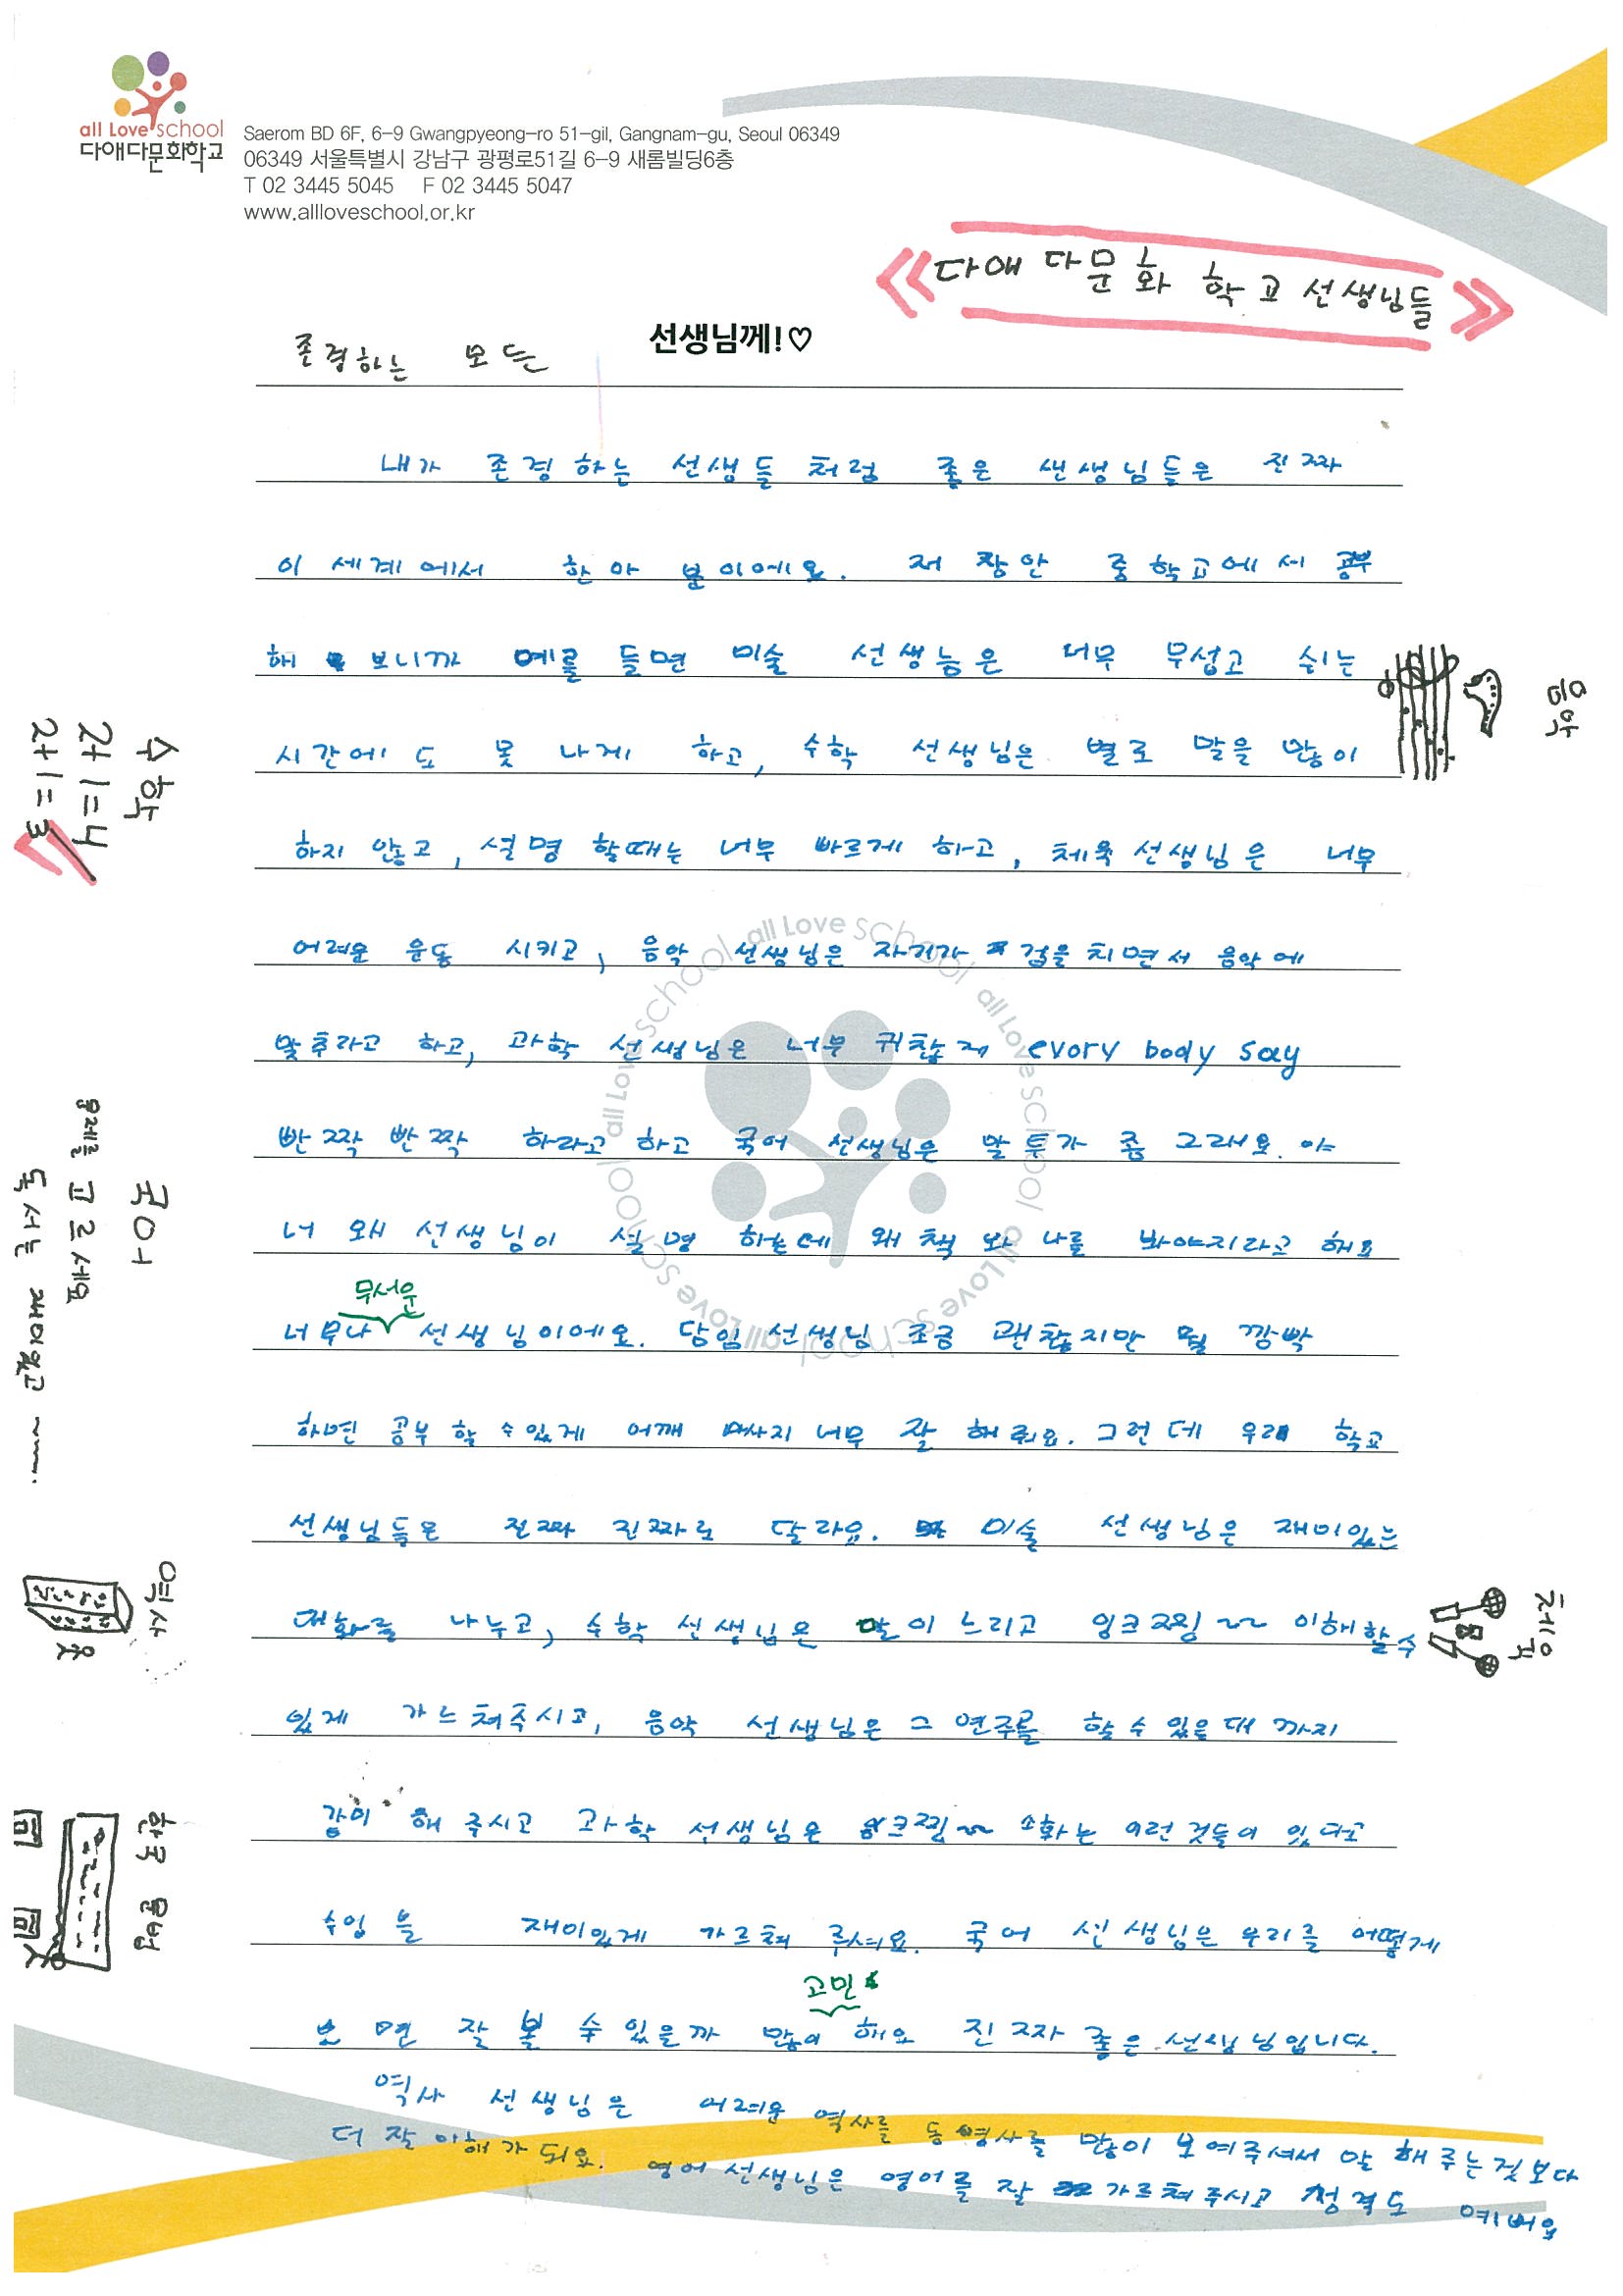 all Love school
다애다문화학교
Saerom BD 6F, 6-9 Gwangpyeong-ro 51-gil, Gangnam-gu, Seoul 06349
06349 서울특별시 강남구 광평로51길 6-9 새롬빌딩6층
T 02 3445 5045 F 02 3445 5047
www.allloveschool.or.kr
《다애 다문화 학교 선생님들》
존경하는 모든 선생님께!♡
내가 존경하는 선생들 처럼 좋은 샌생님들은 진짜
이 세계에서 한아 분이에요. 저 장안 중학교에서 공부
해 보니까 예를 들면 미술 선생늠은 너무 무섭고 쉬는
시간에도 못 나게 하고, 수학 선생님은 별로 말을 많이
하지 않고, 설명 할때는 너무 빠르게 하고, 체육 선생님은 너무
어려운 운동 시키고, 음악 선생님은 자기가 검을 치면서 음악에
맞추라고 하고, 과학 선생님은 너무 귀찮게 evory body say
반짝 반짝 하라고 하고 국어 선생님은 말투가 좀 그래요. 야
너 왜 선생님이 설명 하는데 왜 책 와 나를 봐야지라고 해요
너무나 무서운 선생님이에요. 담임 선생님 조금 괜찮지만 뭘 깜빡
하면 공부 할 수 있게 어깨 마사지 너무 잘 해줘요. 그런데 우리 학교
선생님들은 진짜 진짜로 달라요. 미술 선생님은 재미있는
대화를 나누고, 수학 선생님은 말이 느리고 잉크찡~~ 이해할 수
있게 가느쳐주시고, 음악 선생님은 그 연주를 할 수 있을 대 까지
강이 해 주시고 과학 선생님은 잉크찡~~ 소화는 이런 것들이 있다고
수업 을 재미있게 가르쳐 주셔요. 국어 선생님은 우리를 어떻게
보면 잘 볼 수 있을까 많이 고민 해요 진짜 좋은 선생님입니다.
역사 선생님은 어려운 역사를 동영상를 많이 보여주셔서 말 해 주는것 보다
더 잘 이해가 되요. 영어 선생님은 영어를 잘 가르쳐 주시고 성격도 예뻐요
수학
2+1=4
2+1=3
국어
문제를 고르세요
독서는 재미있고 ~~~.
역사
한국 문법
음악
체육
all Love school all Love school all Love school all Love school all Love school all Love school